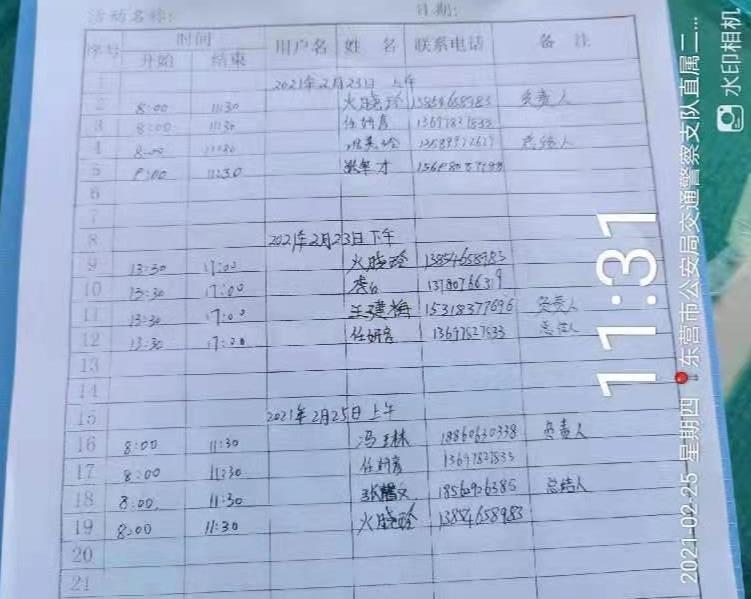 活动名称: 日期:
序号 时间 用户名 姓 名 联系电话 备 注
开始 结束
1 2021年2月23日 上午
2 8:00 11:30 火晓玲 13854658983 负责人
3 8:00 11:30 任妍彦 13697827833
4 8:00 11:30 总结人
5 8:00 11:30
6
7
8 2021年2月23日下午
9 13:30 17:00 火晓玲 13854658983
10 13:30 17:00 13780766319
11 13:30 17:00 王建梅 15318377696 负责人
12 13:30 17:00 任妍彦 13697827833 总结人
13
14
15 2021年2月25日 上午
16 8:00 11:30 冯玉林 18860630338 负责人
17 8:00 11:30 任妍彦 13697827833
18 8:00 11:30 总结人
19 8:00 11:30 火晓玲 13854658983
20
21
11:31
2021-02-25 星期四 东营市公安局交通警察支队直属二...
水印相机